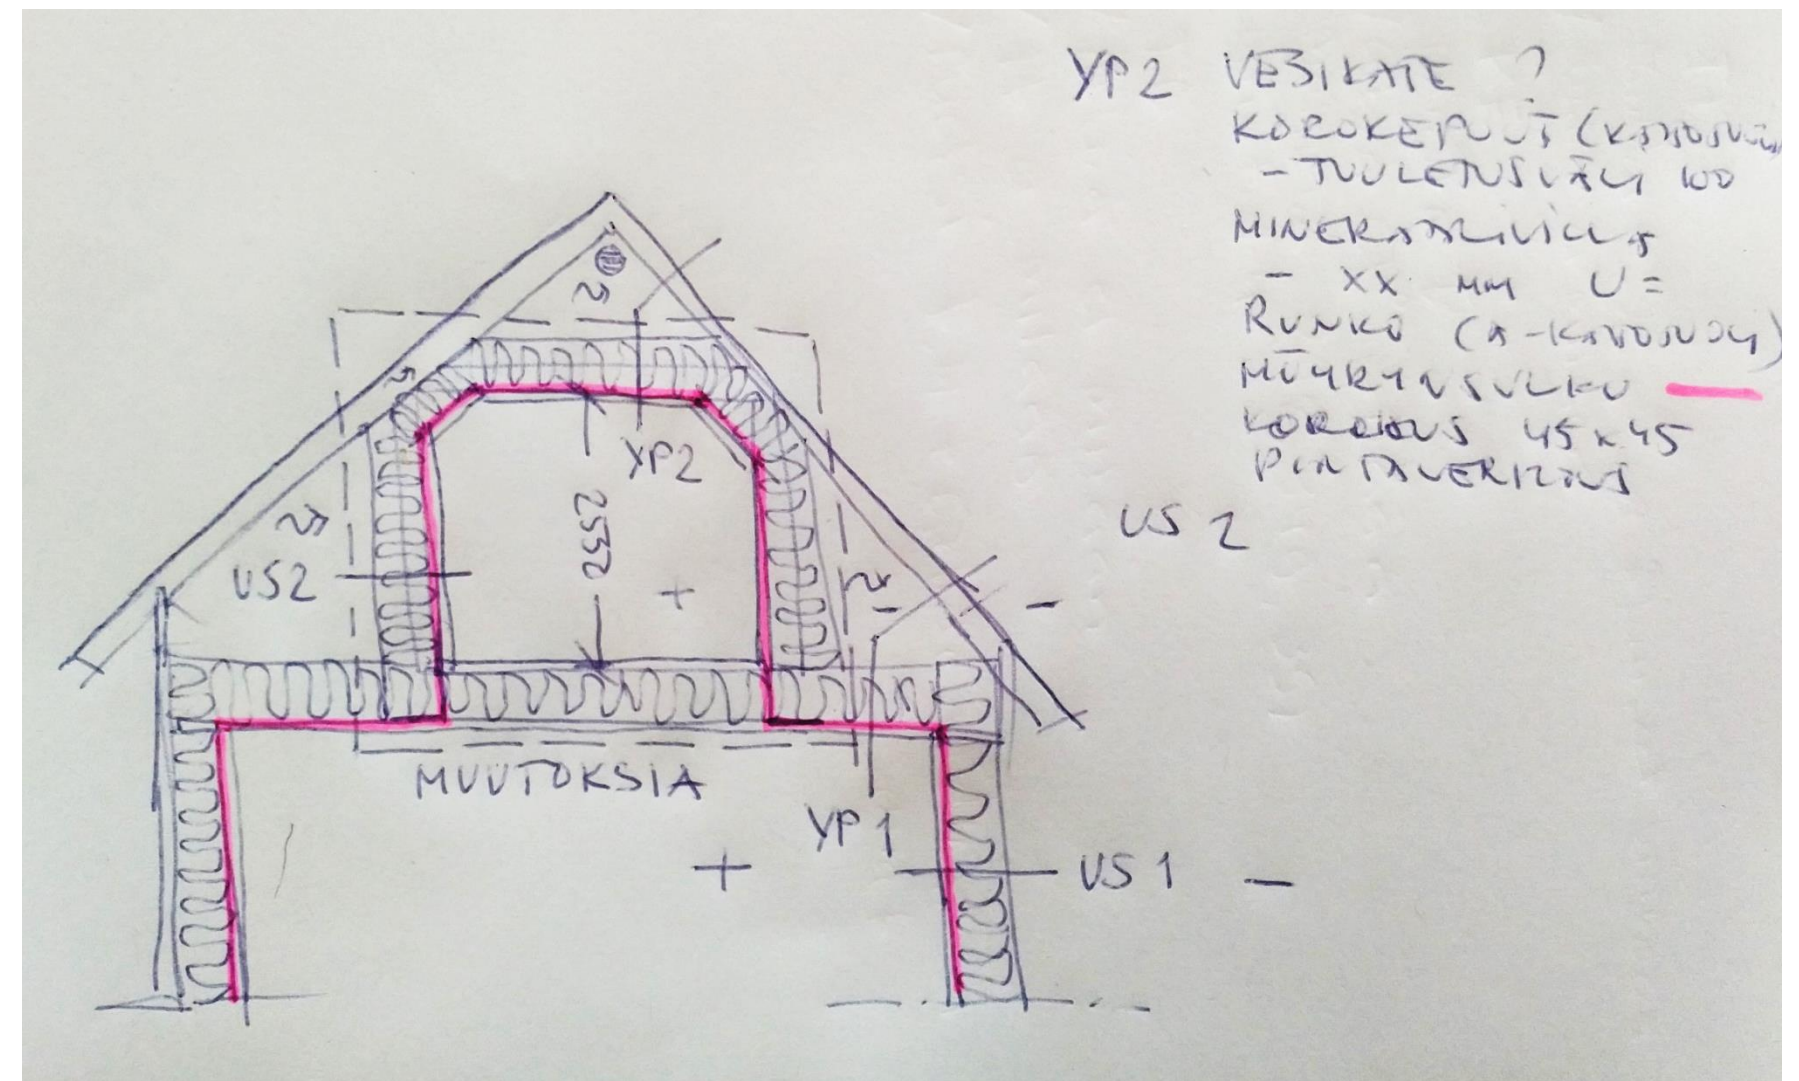 YP2 VESIKATE ?
KOROKEPUUT (KATTOTUOLI
- TUULETUSVÄLI 100
MINERAALIVILLA
- XX MM U =
RUNKO (A-KATTOTUOLI)
HÖYRYNSULKU
KOROTUS 45x45
PINTAVERHOUS
YP2
US 2
2532
US2
+
-
-
MUUTOKSIA
YP1
+
US1
-